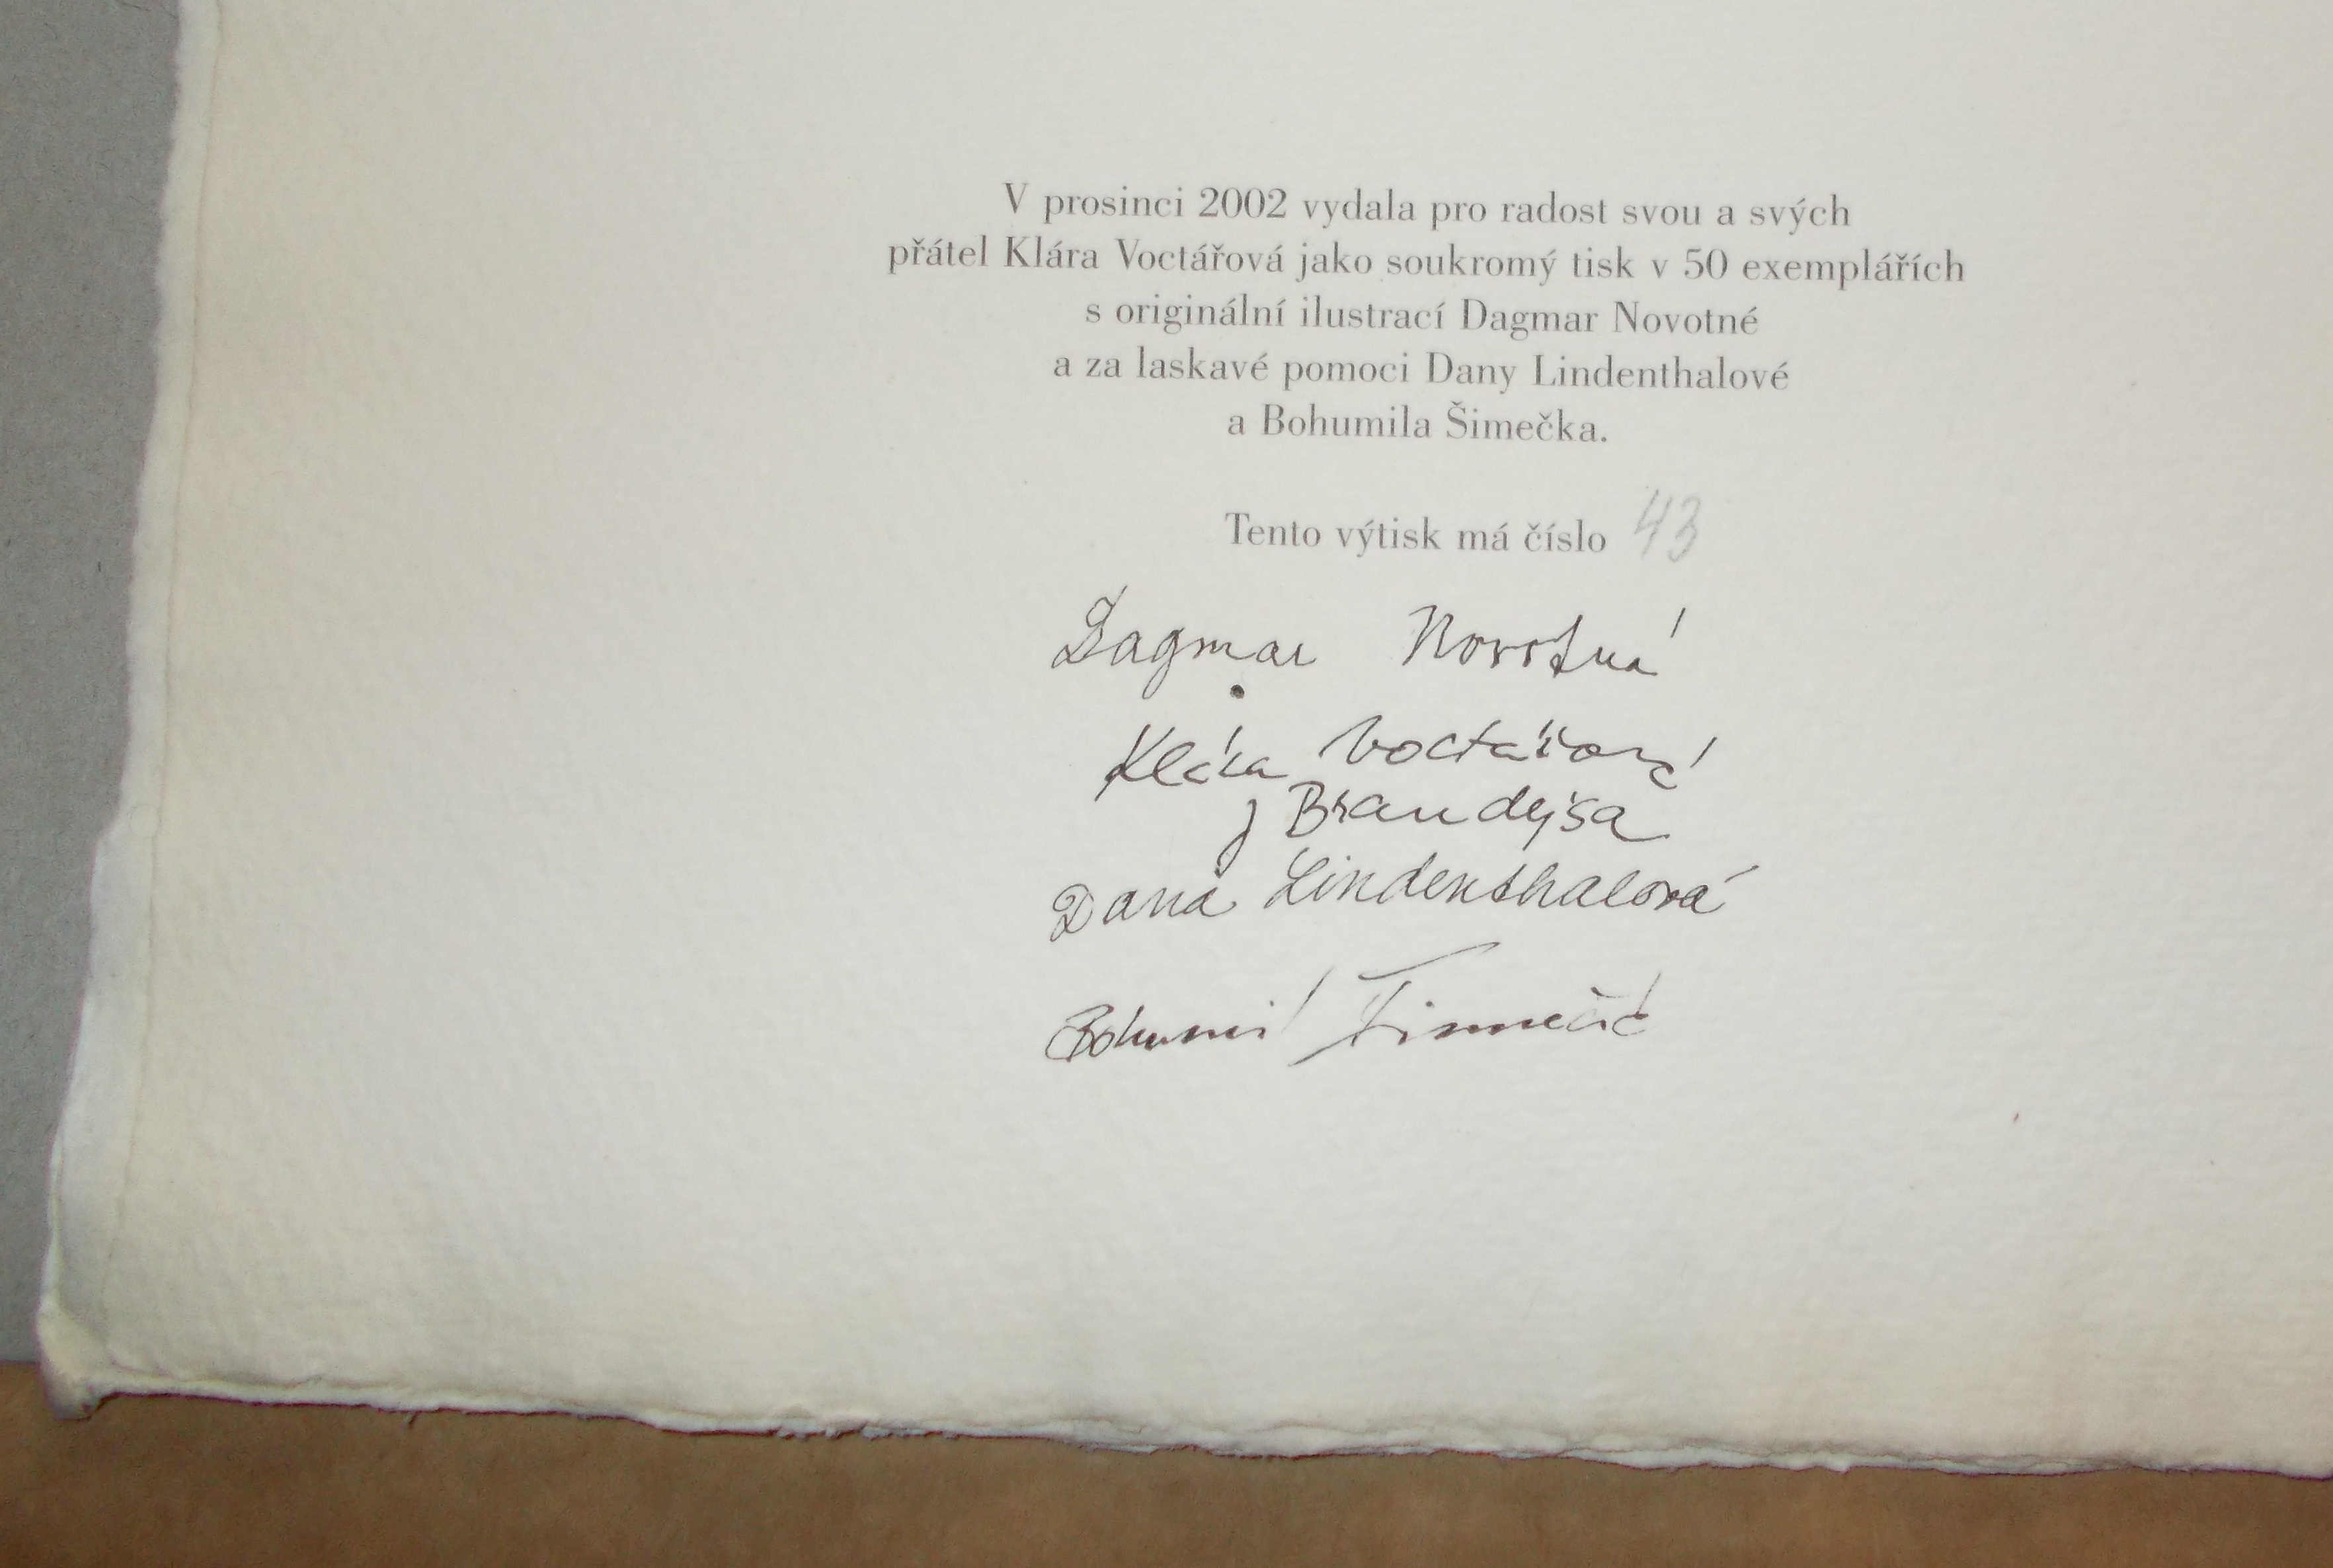 V prosinci 2002 vydala pro radost svou a svých
přátel Klára Voctářová jako soukromý tisk v 50 exemplářích
s originální ilustrací Dagmar Novotné
a za laskavé pomoci Dany Lindenthalové
a Bohumila Šimečka.
Tento výtisk má číslo 43
Dagmar Novotná
Klára Voctářová
Brandejsa
Dana Lindenthalová
Bohumil Šimeček